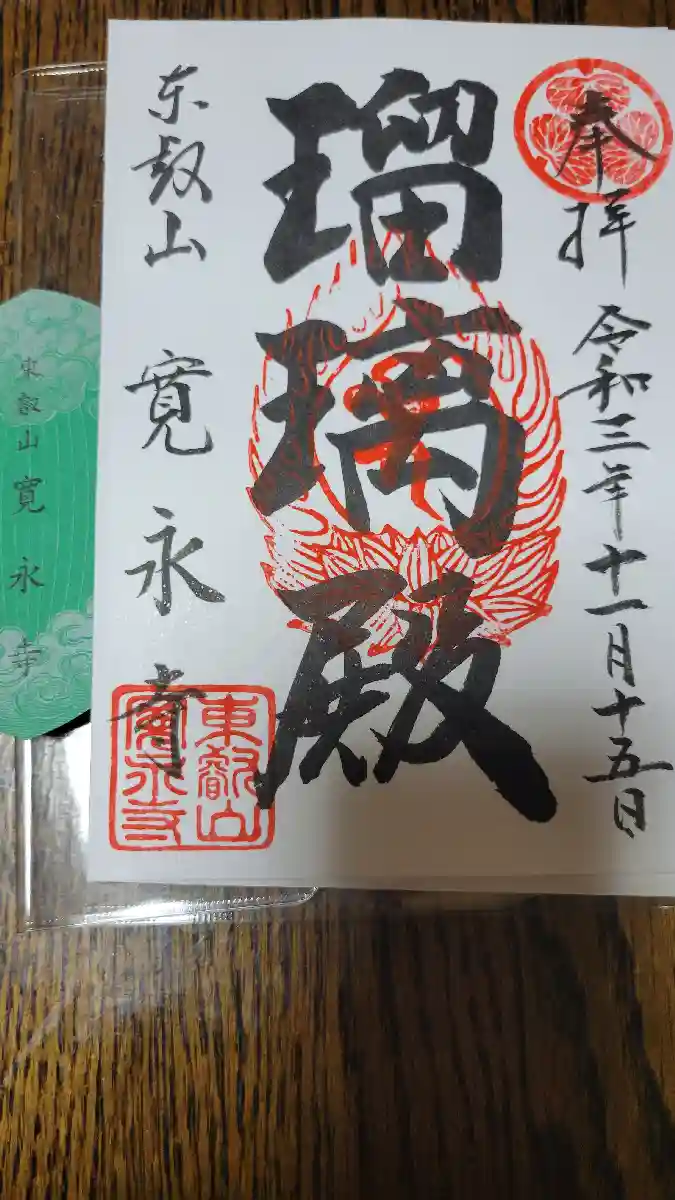 奉拝 令和三年十一月十五日
瑠璃殿
东叡山 寛永寺
東叡山
寛永寺
東叡山寛永寺